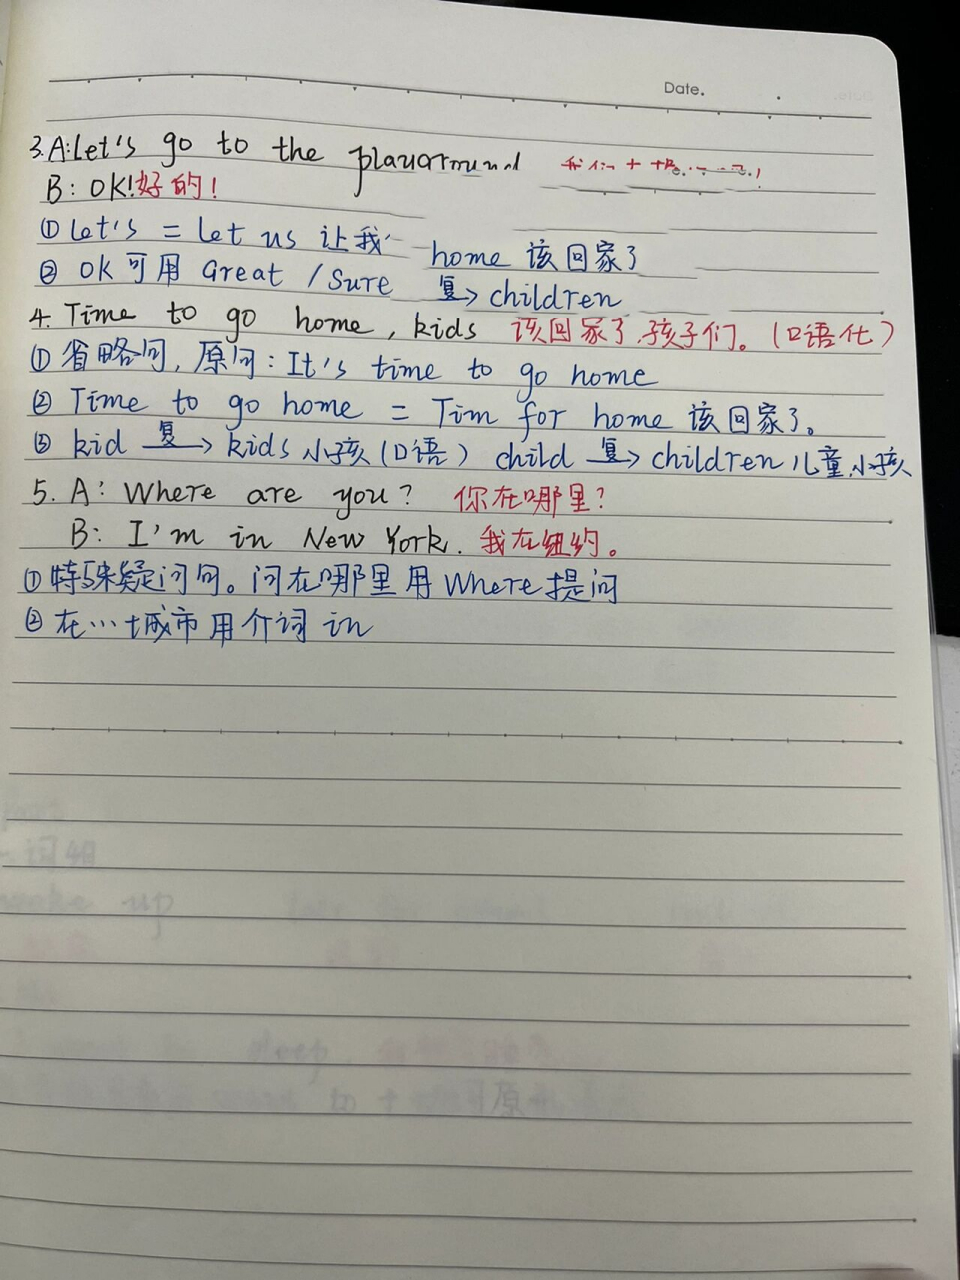 Date.
3.A:Let's go to the
B: OK!好的!
① Let's = Let us 让我
home 该回家了
② OK 可用 Great / Sure
复→ children
4. Time to go home, kids 该回家了,孩子们。(口语化)
① 省略句,原句: It's time to go home
② Time to go home = Tim for home 该回家了。
③ kid 复→ kids 小孩(口语) child 复→ children 儿童,小孩
5. A: Where are you? 你在哪里?
B: I'm in New York. 我在纽约。
① 特殊疑问句。问在哪里用 Where 提问
② 在…+城市用介词 in